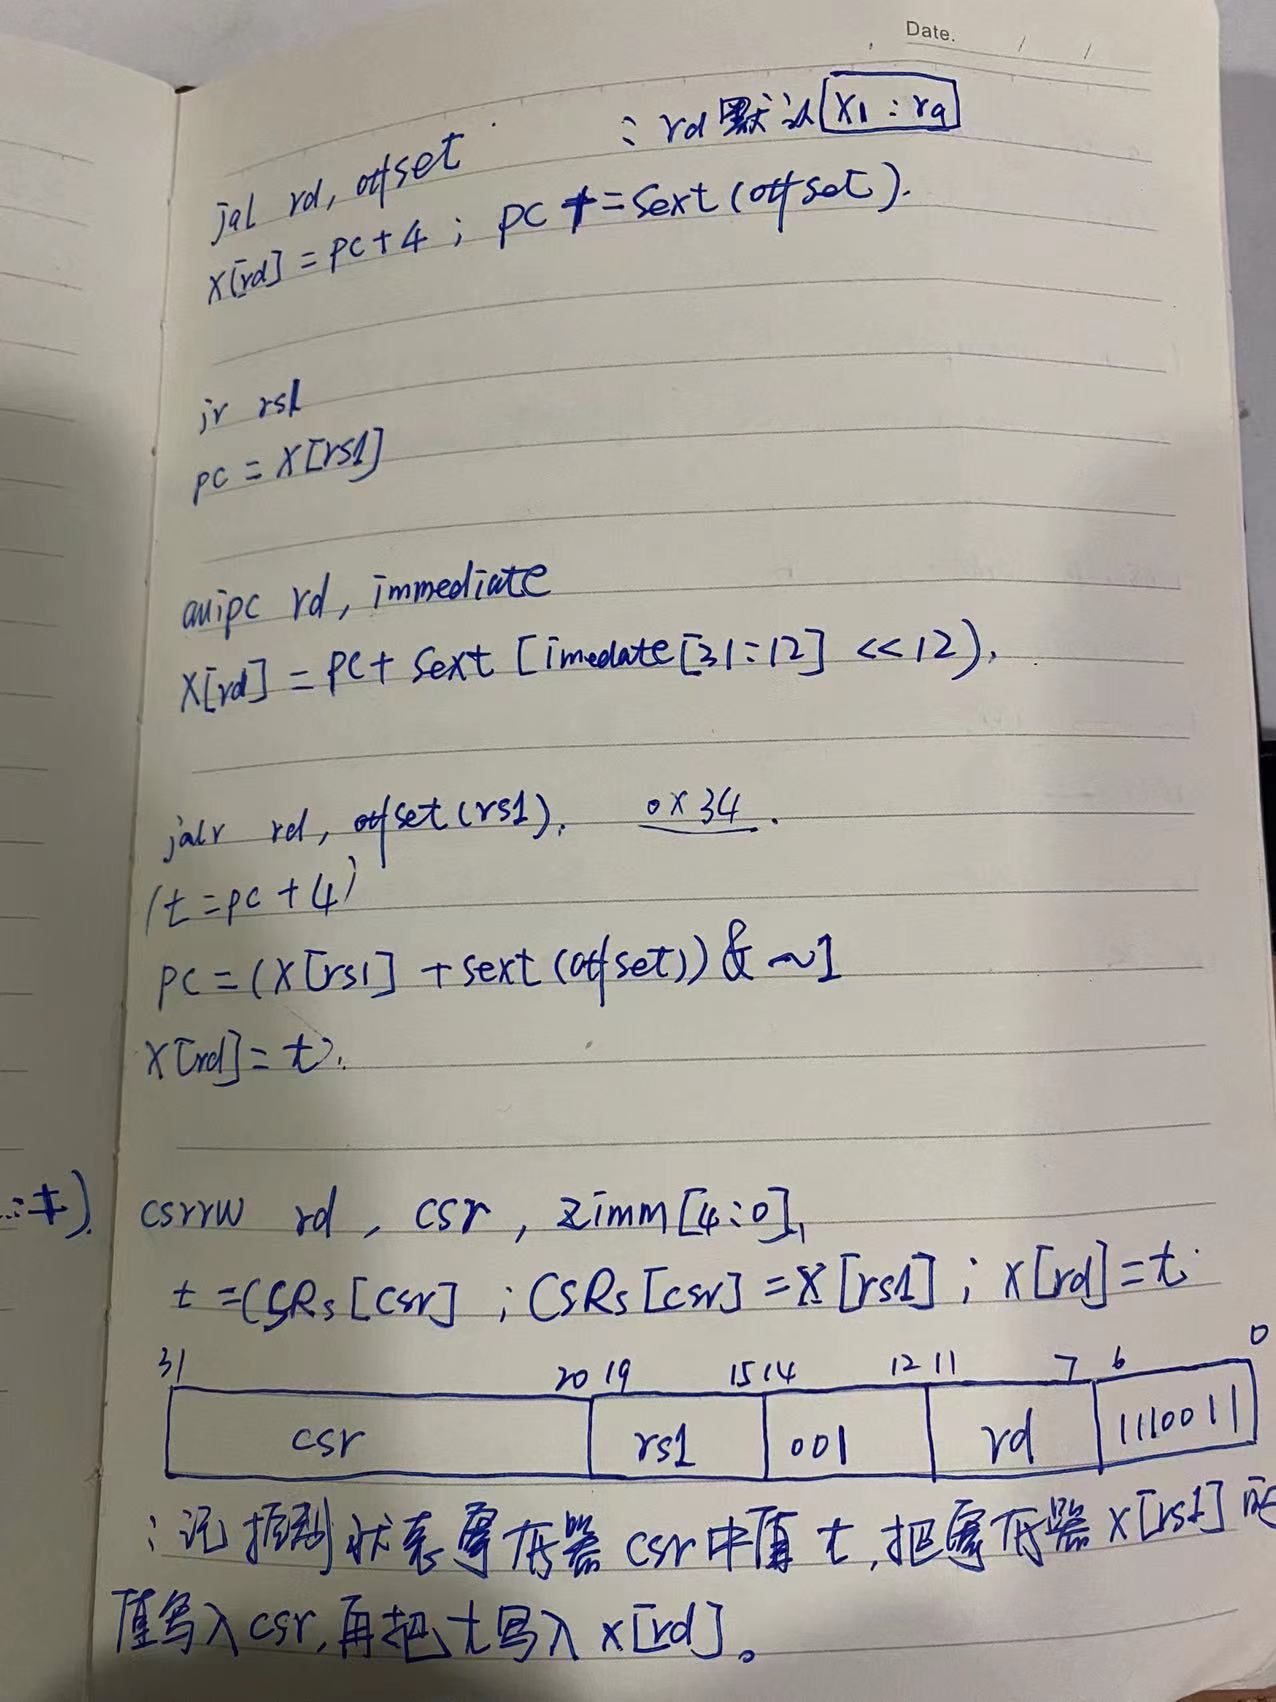 Date. / /
jal rd, offset : rd 默认 x1 : ra
x[rd] = pc + 4 ; pc += sext (offset).
jr rs1
pc = x[rs1]
auipc rd, immediate
x[rd] = pc + sext [imedate[31:12] << 12).
jalr rd, offset(rs1). 0x34.
(t = pc + 4)
pc = (x[rs1] + sext (offset)) & ~1
x[rd] = t).
csrrw rd , csr , zimm[4:0],
t = CSRs [csr] ; CSRs [csr] = x [rs1] ; x[rd] = t.
31 20 19 15 14 12 11 7 6 0
csr rs1 001 rd 1110011
: 记控制状态寄存器 csr中值 t, 把寄存器 x[rs1] 的
值写入 csr, 再把 t 写入 x[rd]。